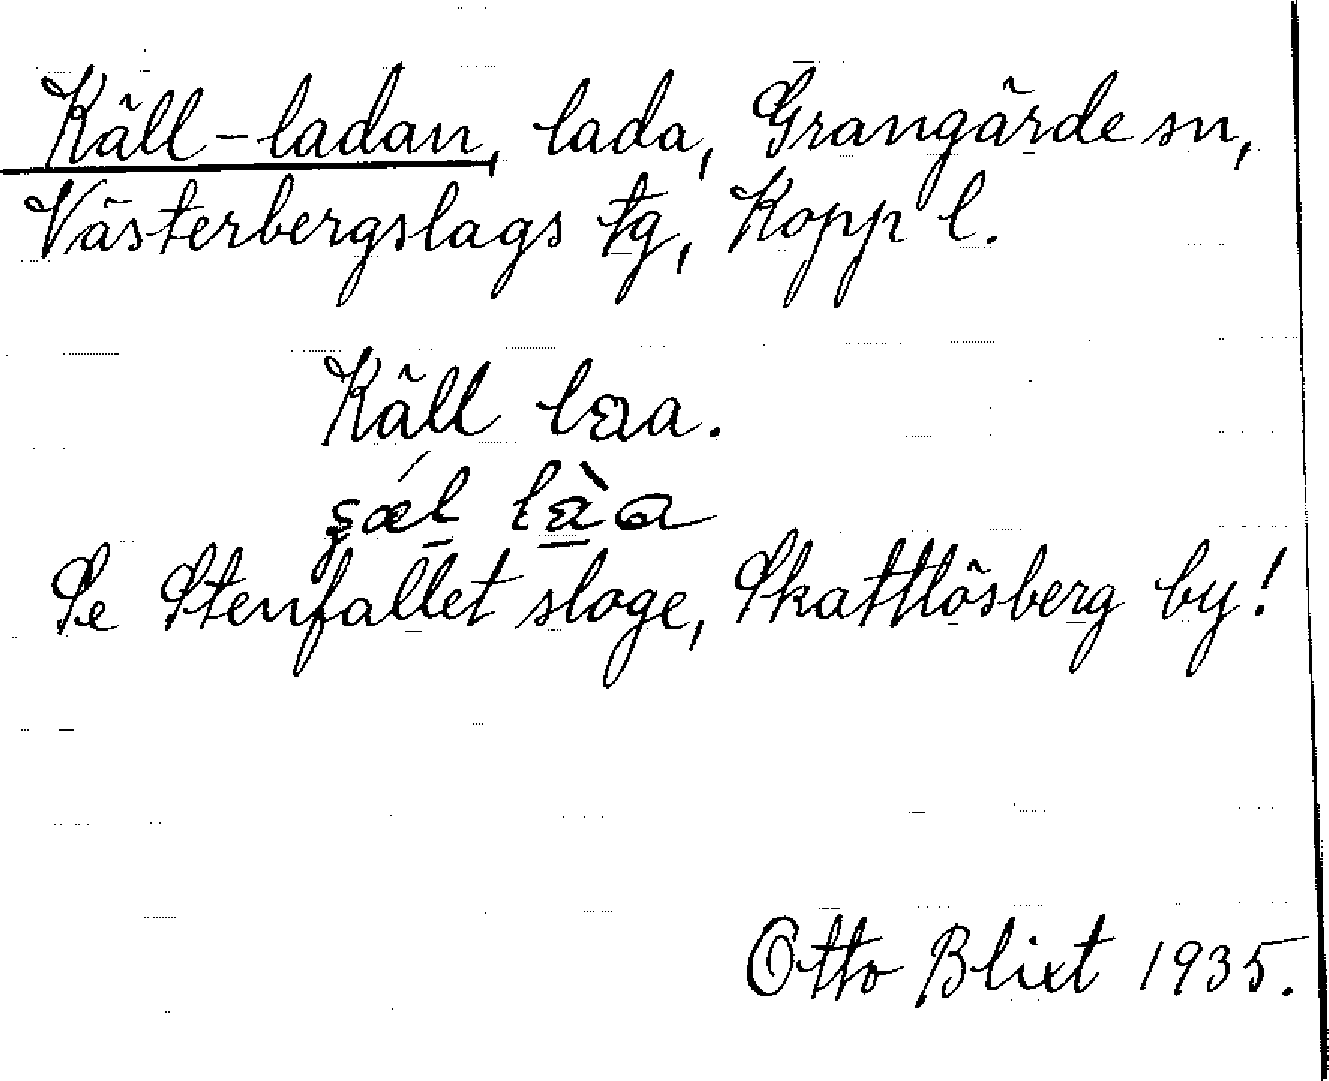 Käll-ladan, lada, Grangärde sn,
Västerbergslags tg, Kopp l.
Käll laa.
Se Stenfallet sloge, Skattlösberg by!
Otto Blixt 1935.